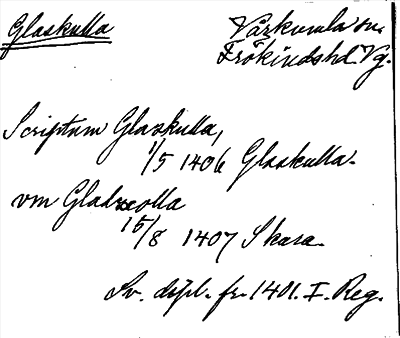 Glaskulla
Vårkumla sn.
Frökindshd Vg.
Scriptum Glaskulla,
1/5 1406 Glaskulla.
vm Gladxcolla
15/8 1407 Skara.
Sv. dipl. fr. 1401. I. Reg.